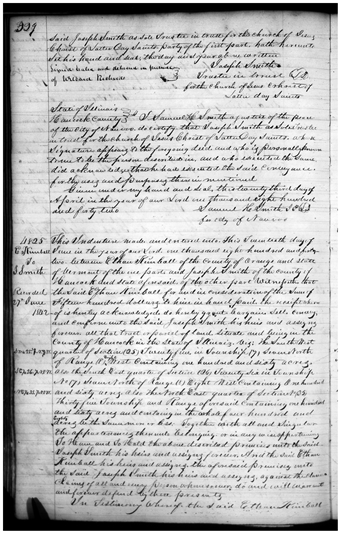 339
Said Joseph Smith as sole Trustee in trust for the church of Jesus
Christ of Latter Day Saints party of the first part hath hereunto
set his hand and seal, the day and year above written
Signed Sealed and delivered in presence Joseph Smith
of Willard Richards Trustee in trust
for the Church of Jesus Christ of
Latter day Saints
State of Illinois
Hancock County I Samuel H. Smith of the peace
of the City of Nauvoo do certify that Joseph Smith as Sole Trustee
in trust for the church of Jesus Christ of Latter Day Saints whose
signature appears to the foregoing deed and who is personally known
to me to be the person described in, and who executed the same
did acknowledge that he had executed the said Conveyance
for the uses and purposes therein mentioned.
Given under my hand and seal, this twenty third day of
April in the year of our Lord one thousand eight hundred
and forty two Samuel H. Smith
of Nauvoo
4825
E. Kimball
To
J. Smith
27 June
1842
This Indenture made and entered into this Twentieth day of
June in the year of our Lord one thousand eight hundred and forty
two between Ethan Kimball of the County of Orange and State
of Vermont of the one part and Joseph Smith of the County of
Hancock and State of Illinois of the other part Witnesseth that
the Said Ethan Kimball for and in consideration of the Sum of
Fifteen hundred dollars to him in hand paid the receipt where
of is hereby acknowledged do hereby grant bargain Sell convey
and confirm unto the said Joseph Smith his heirs and assigns
forever all that Tract or parcel of land situate and being in the
County of Hancock in the State of Illinois the South West
quarter of Section (25) Twenty five in Township (7) Seven North
of Range West Containing one hundred and sixty acres
Also the South East quarter of Section (26) Twenty Six in Township
No (7) Seven North of Range Eight West Containing one hundred
and sixty acres Also the North East quarter of Section No 35
Thirty five Township and Range aforesaid Containing one hundred
and sixty acres and containing in the whole four hundred and
eighty acres be the same more or less. Together with all and singular
the appurtenances thereunto belonging or in any wise appertaining
To Have and To Hold the above described premises unto the said
Joseph Smith his heirs and assigns forever. And the said Ethan
Kimball his heirs and assigns the aforesaid premises unto
the said Joseph Smith his heirs and assigns, against the
claims of all and every person whomsoever, do and will warrant
and forever defend by these presents
In Testimony Whereof the said Ethan Kimball